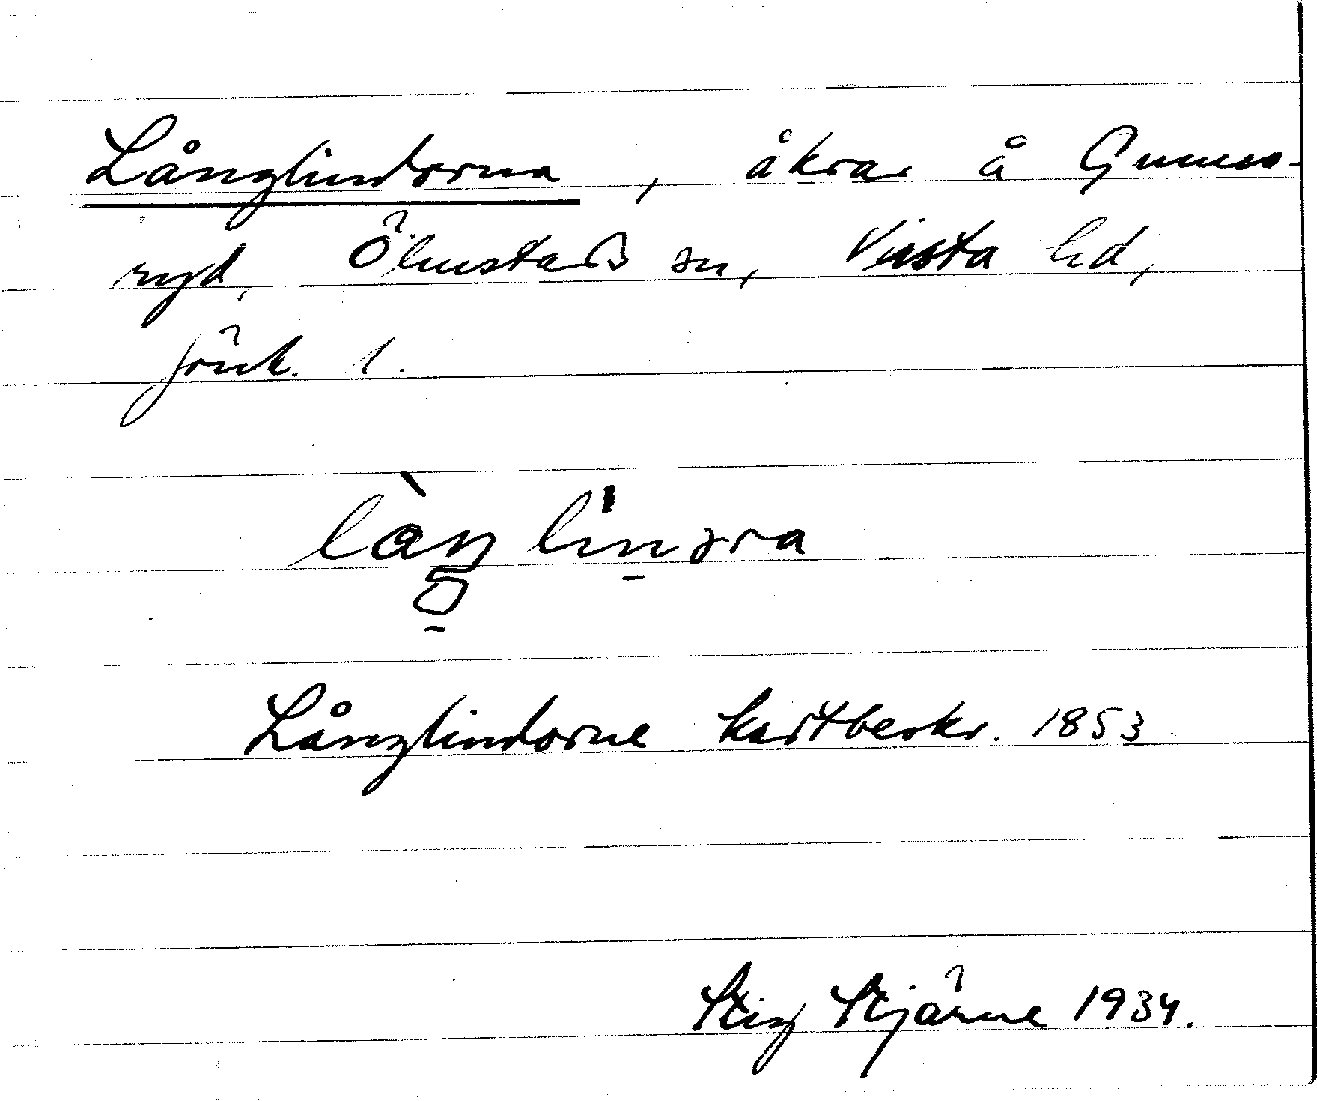 Långlindorna, åkrar å Gunna-
ryd, Ölmstads sn, Vista hd,
Jönk. l.
làŋ linɔra
Långlindorne kartbeskr. 1853
Stig Stjärne 1934.